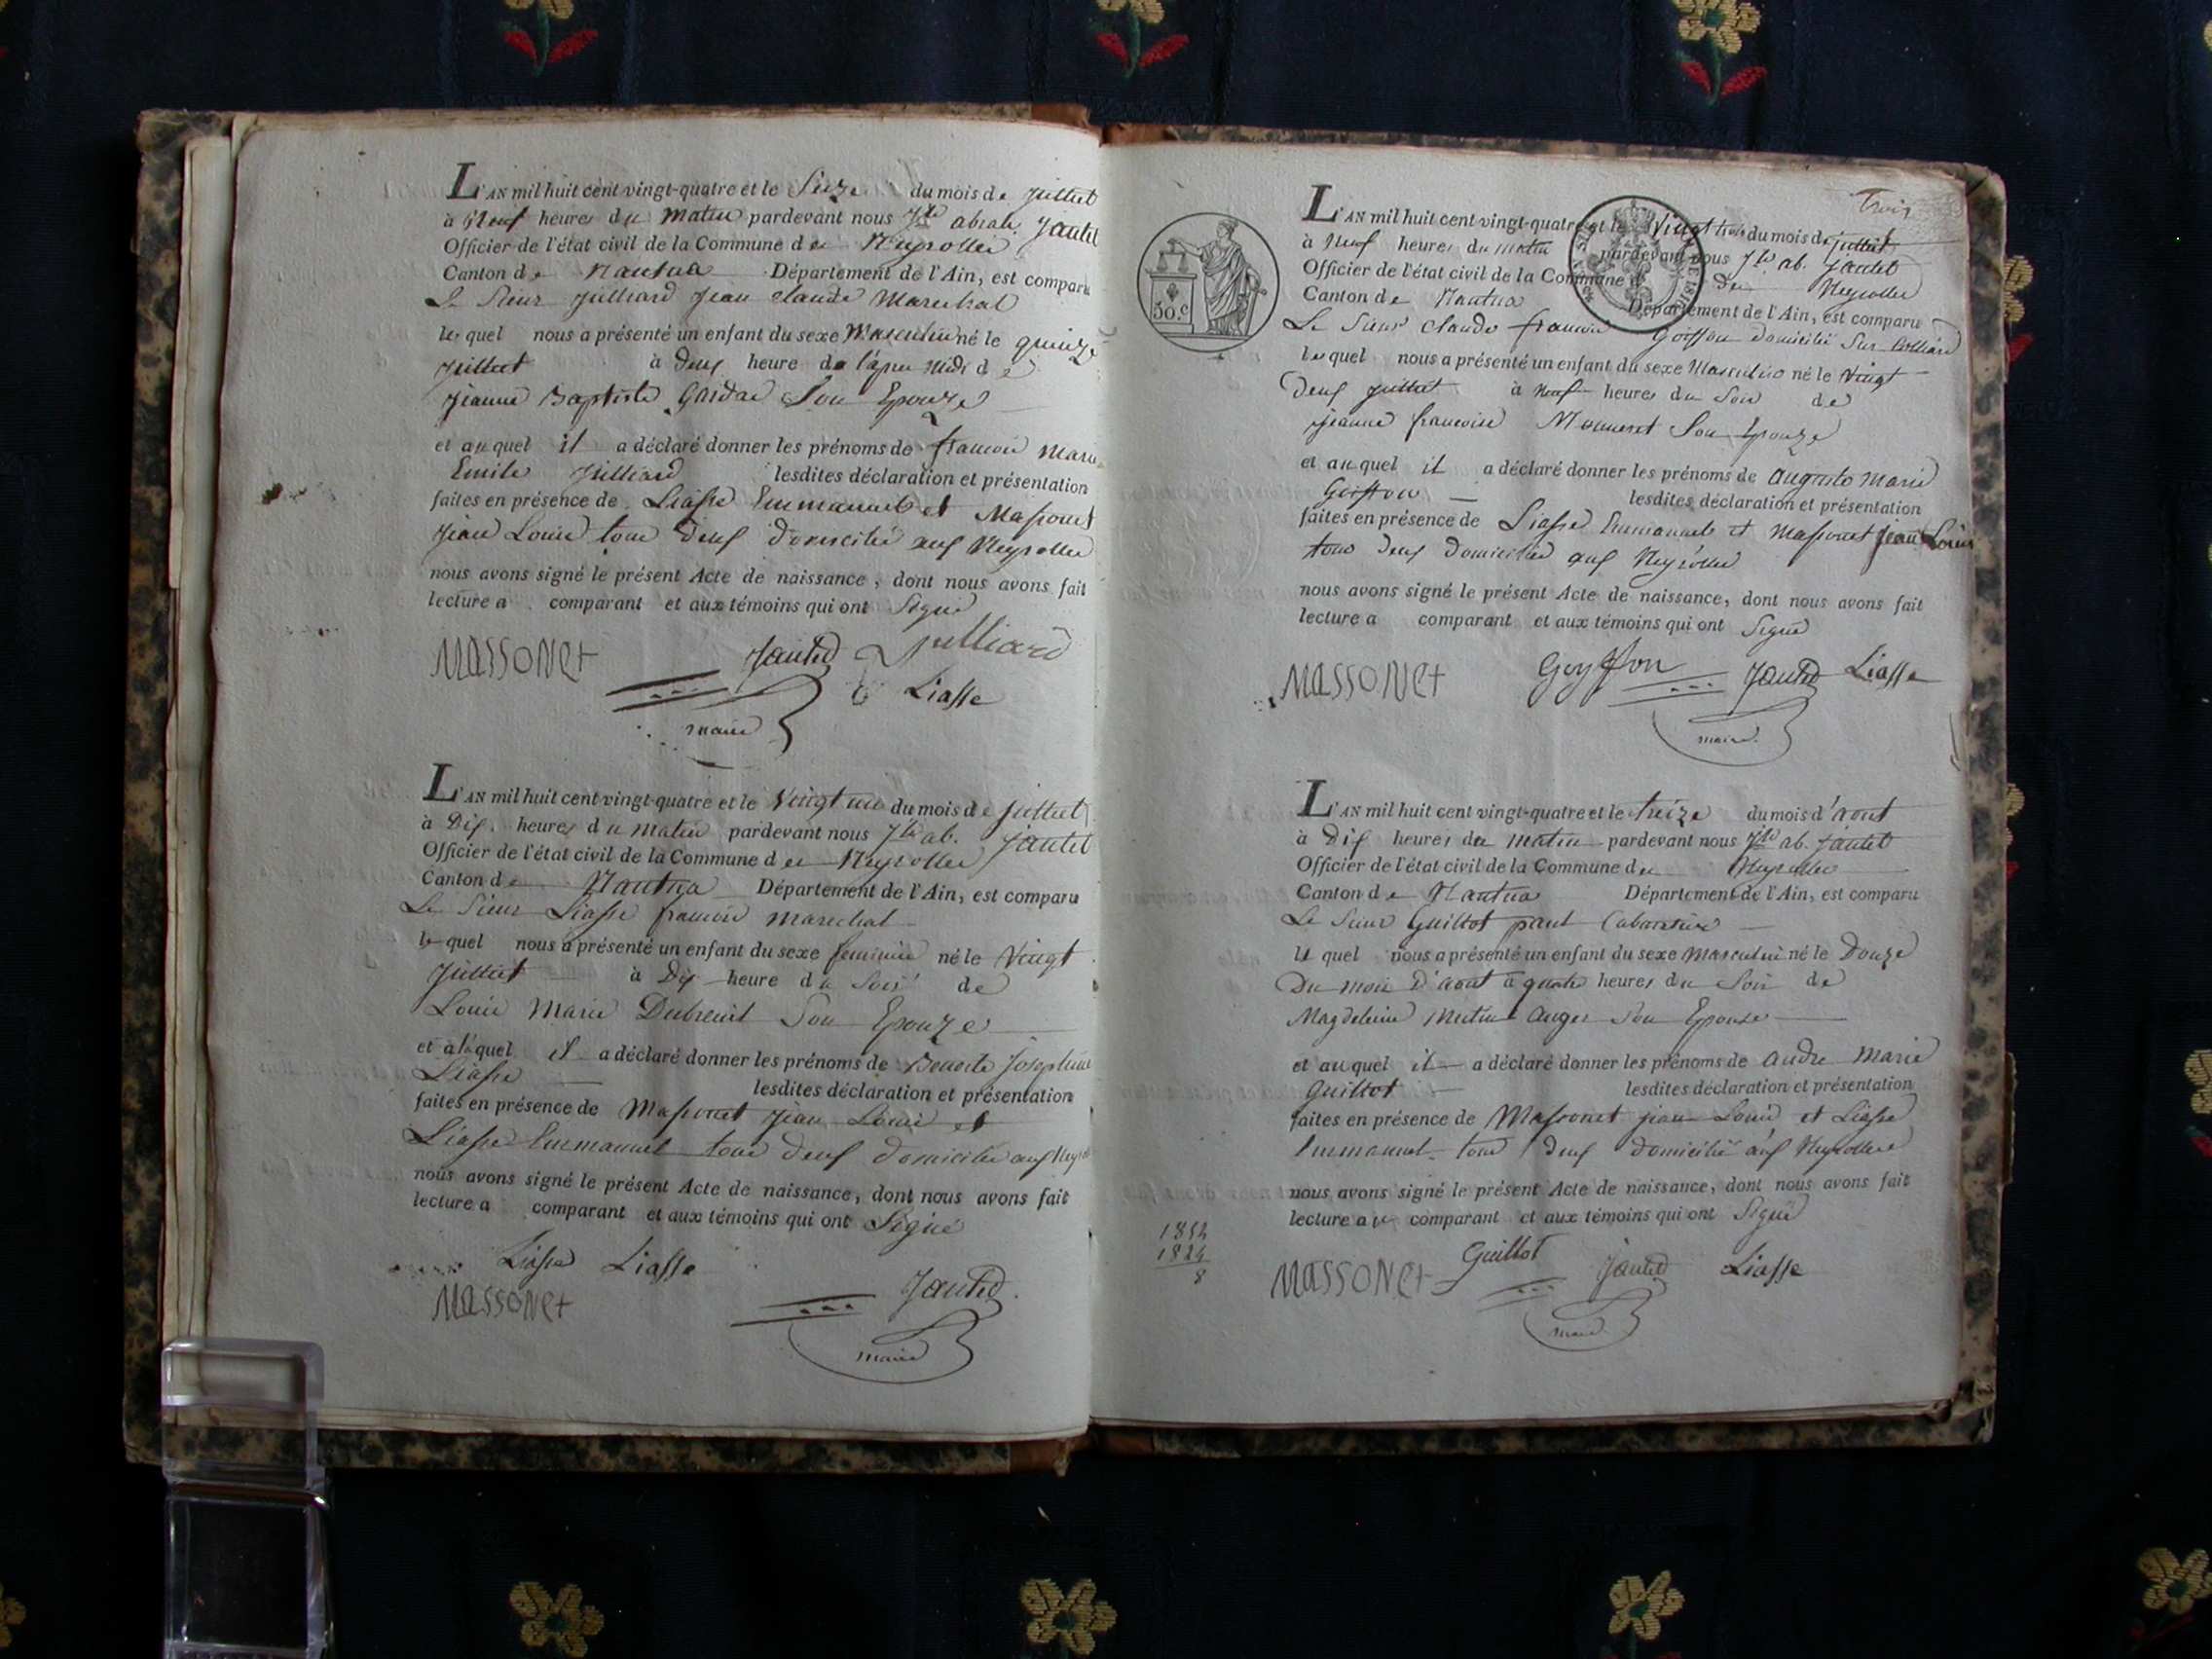 L'AN mil huit cent vingt-quatre et le Seize du mois de juillet
à Neuf heures du matin pardevant nous jh abrah. Jantet
Officier de l'état civil de la Commune des Neyrolles
Canton de Nantua Département de l'Ain, est comparu
Le Sieur Julliard Jean Claude Marechal
lequel nous a présenté un enfant du sexe Masculin né le quinze
juillet à deux heure de l'apres Midi de
jeanne Baptiste Son Epouze
et auquel il a déclaré donner les prénoms de francois Marie
Emile Julliard lesdites déclaration et présentation
faites en présence de Liasse Emmanuel et Massonet
jean Louis tous deux domicilié aux Neyrolles
nous avons signé le présent Acte de naissance, dont nous avons fait
lecture a comparant et aux témoins qui ont Signé
MassoNet Jantet Julliard
Liasse
maire
L'AN mil huit cent vingt-quatre et le Vingt un du mois de juillet
à Dix heures du matin pardevant nous jh ab. Jantet
Officier de l'état civil de la Commune des Neyrolles
Canton de Nantua Département de l'Ain, est comparu
Le Sieur Liasse francois marechal
lequel nous a présenté un enfant du sexe feminin né le Vingt
Juillet à Dix heure du Soir de
Louise Marie Dubreuil Son Epouze
et a laquel il a déclaré donner les prénoms de Benoite Josephine
Liasse lesdites déclaration et présentation
faites en présence de Massonet jean Louis et
Liasse Emmanuel tous deux domicilié aux Neyrolles
nous avons signé le présent Acte de naissance, dont nous avons fait
lecture a comparant et aux témoins qui ont Signé
Liasse Liasse
MassoNet Jantet
maire
Trois
50.c
L'AN mil huit cent vingt-quatre et le Vingt trois du mois de juillet
à Neuf heures du matin pardevant nous jh ab. Jantet
Officier de l'état civil de la Commune des Neyrolles
Canton de Nantua Département de l'Ain, est comparu
Le Sieur Claude francois Goiffon domicilié Sur
lequel nous a présenté un enfant du sexe Masculin né le Vingt
deux juillet à Neuf heures du Soir de
jeanne francoise Monneret Son Epouze
et auquel il a déclaré donner les prénoms de auguste marie
Goiffon lesdites déclaration et présentation
faites en présence de Liasse Emmanuel et Massonet jean Louis
tous deux domicilié aux Neyrolles
nous avons signé le présent Acte de naissance, dont nous avons fait
lecture a comparant et aux témoins qui ont Signé
MassoNet Goyffon Jantet Liasse
maire
L'AN mil huit cent vingt-quatre et le treize du mois d'aout
à Dix heures du matin pardevant nous jh ab. Jantet
Officier de l'état civil de la Commune des Neyrolles
Canton de Nantua Département de l'Ain, est comparu
Le Sieur Guillot paul Cabaretier
lequel nous a présenté un enfant du sexe Masculin né le Douze
Du mois d'aout à quatre heures du Soir de
Magdeleine auger Son Epouse
et auquel il a déclaré donner les prénoms de andre marie
Guillot lesdites déclaration et présentation
faites en présence de Massonet jean Louis et Liasse
Emmanuel tous deux domicilié aux Neyrolles
nous avons signé le présent Acte de naissance, dont nous avons fait
lecture au comparant et aux témoins qui ont Signé
1824
8
MassoNet Guillot Jantet Liasse
maire